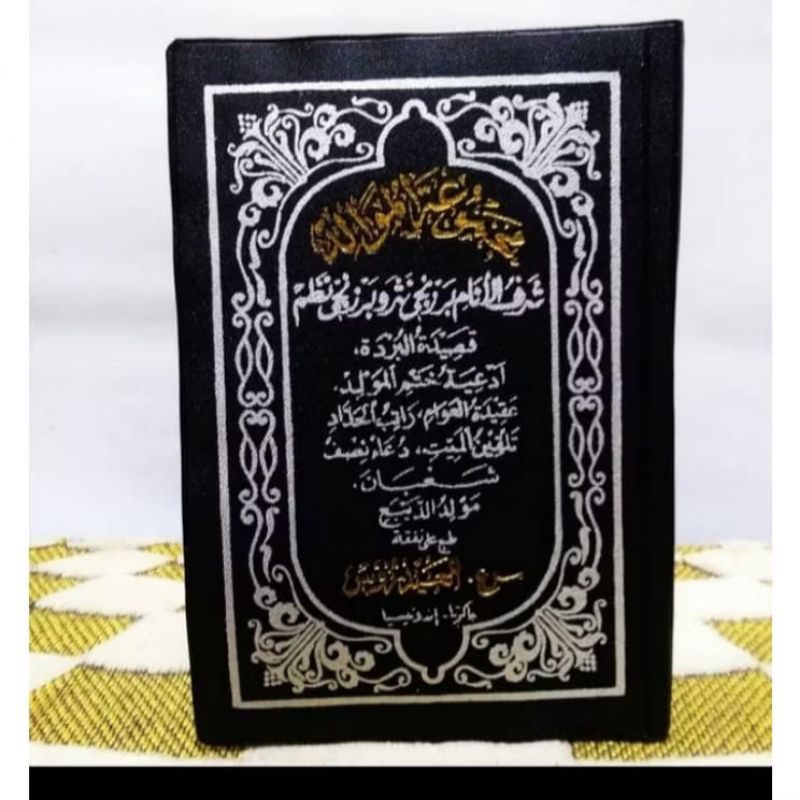 مجموعة الموالد
شرف الأنام برزنجي نثر وبرزنجي نظم
قصيدة البردة،
أدعية ختم المولد.
عقيدة العوام، راتب الحداد
تلقين الميت، دعاء نصف
شعبان.
مولد الديبع
طبع على نفقة
س.ع. العيدروس
جاكرتا - إندونيسيا